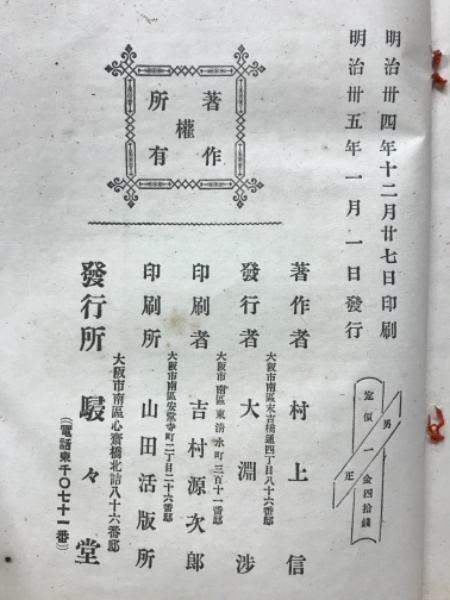 明治卅四年十二月廿七日印刷
明治卅五年一月一日發行
定價一金四拾錢
正
著作
權
所有
著作者 村上信
大阪市南區末吉橋通四丁目八十六番邸
發行者 大淵渉
大阪市南區東清水町三百十一番邸
印刷者 吉村源次郎
大阪市南區安堂寺町二丁目二十六番邸
印刷所 山田活版所
大阪市南區心齋橋北詰八十六番邸
發行所 駸々堂
(電話東千〇七十一番)